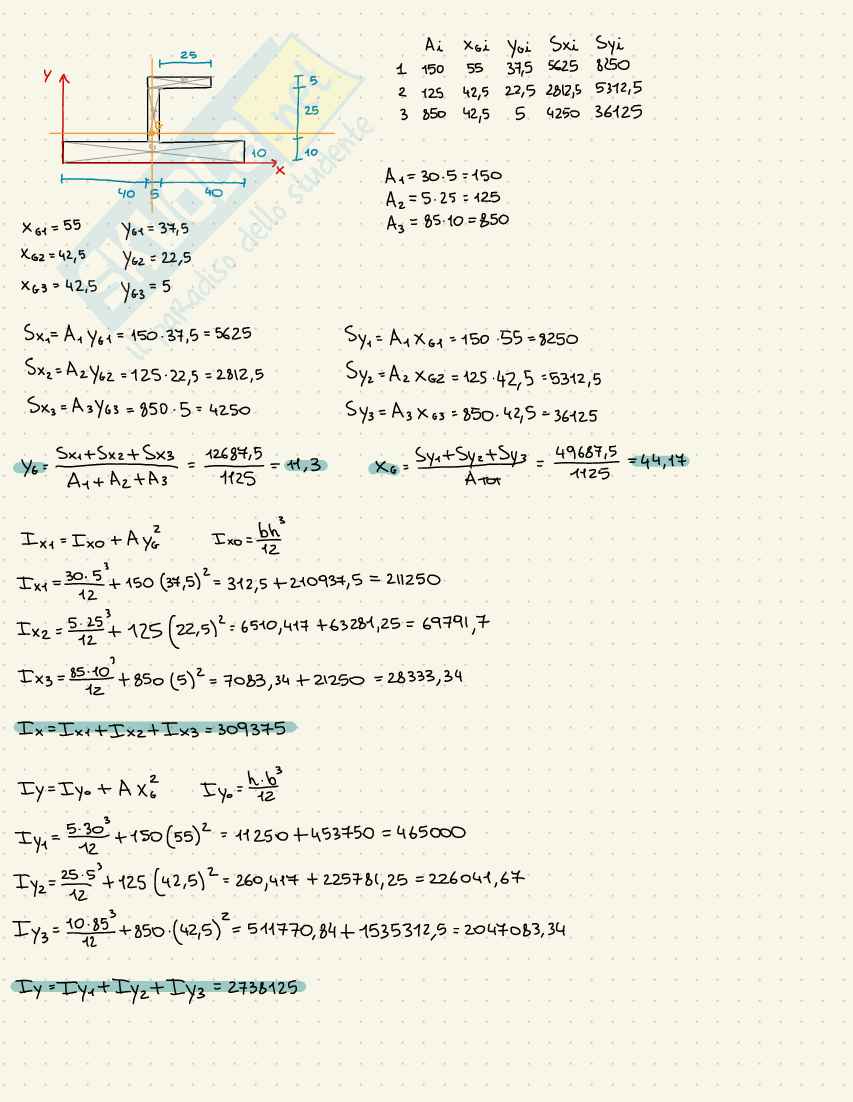 25
y
5
25
10
10
x
40 5 40
Ai xGi yGi Sxi Syi
1 150 55 37,5 5625 8250
2 125 42,5 22,5 2812,5 5312,5
3 850 42,5 5 4250 36125
A1 = 30·5 = 150
A2 = 5·25 = 125
A3 = 85·10 = 850
xG1 = 55 yG1 = 37,5
xG2 = 42,5 yG2 = 22,5
xG3 = 42,5 yG3 = 5
SKUOLA.net
il paradiso dello studente
Sx1 = A1 yG1 = 150·37,5 = 5625 Sy1 = A1 xG1 = 150·55 = 8250
Sx2 = A2 yG2 = 125·22,5 = 2812,5 Sy2 = A2 xG2 = 125·42,5 = 5312,5
Sx3 = A3 yG3 = 850·5 = 4250 Sy3 = A3 xG3 = 850·42,5 = 36125
yG = (Sx1+Sx2+Sx3)/(A1+A2+A3) = 12687,5/1125 = 11,3 xG = (Sy1+Sy2+Sy3)/Atot = 49687,5/1125 = 44,17
Ix1 = Ix0 + A yG² Ix0 = bh³/12
Ix1 = 30·5³/12 + 150 (37,5)² = 312,5 + 210937,5 = 211250
Ix2 = 5·25³/12 + 125 (22,5)² = 6510,417 + 63281,25 = 69791,7
Ix3 = 85·10³/12 + 850 (5)² = 7083,34 + 21250 = 28333,34
Ix = Ix1 + Ix2 + Ix3 = 309375
Iy = Iy0 + A xG² Iy0 = h·b³/12
Iy1 = 5·30³/12 + 150 (55)² = 11250 + 453750 = 465000
Iy2 = 25·5³/12 + 125 (42,5)² = 260,417 + 225781,25 = 226041,67
Iy3 = 10·85³/12 + 850·(42,5)² = 511770,84 + 1535312,5 = 2047083,34
Iy = Iy1 + Iy2 + Iy3 = 2738125